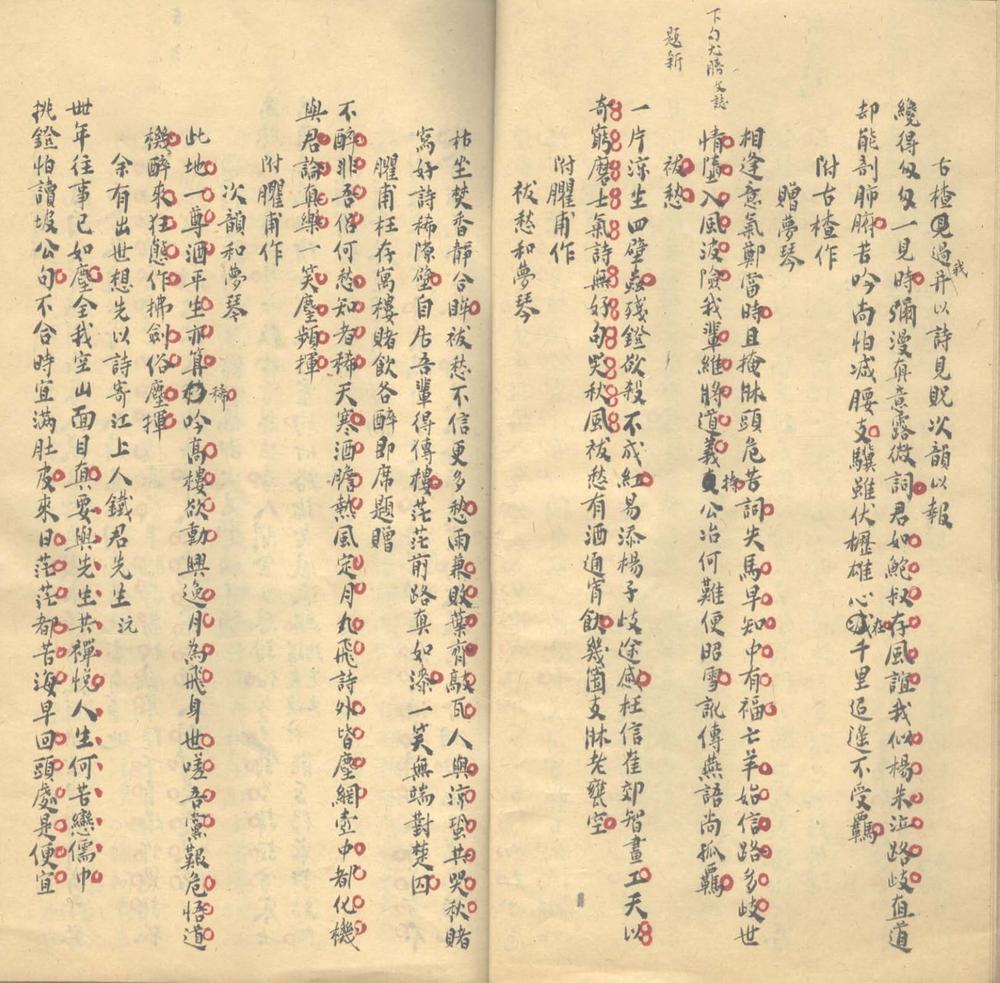 下句尤勝
題新
古楂見過并以詩見貺次韻以報
我
纔得匆匆一見時彌漫真意露微詞君如鮑叔存風誼我似楊朱泣路歧直道
却能剖肺腑苦吟尚怕減腰支驥雖伏櫪雄心在千里追遙不受羈
附古楂作
贈夢琴
相逢意氣鄭當時且掩牀頭危苦詞失馬早知中有福亡羊始信路多歧世
情墮入風波險我輩維將道義持公冶何難便昭雪訛傳燕語尚孤羈
祓愁
一片涼生四壁蟲殘鐙欲殺不成紅易添楊子歧途感枉信崔郊智畫工天以
奇窮磨士氣詩無好句哭秋風祓愁有酒通宵飲幾箇支牀老甕空
附臞甫作
祓愁和夢琴
枯坐焚香靜合眸祓愁不信更多愁雨兼敗葉齊敲瓦人與涼蛩共哭秋賭
寫好詩稀隙壁自居吾輩得傳樓茫茫前路真如漆一笑無端對楚囚
臞甫枉存寓樓賭飲各醉即席題贈
不醉非吾侶何愁知者稀天寒酒膽熱風定月丸飛詩外皆塵網壺中都化機
與君論真樂一笑塵頻揮
附臞甫作
次韻和夢琴
此地一尊酒平生亦算稀吟高樓欲動興逸月為飛身世嗟吾黨艱危悟道
機醉來狂態作拂劍俗塵揮
余有出世想先以詩寄江上人鐵君先生沅
卅年往事已如塵全我空山面目真要與先生共禪悅人生何苦戀儒巾
挑鐙怕讀坡公句不合時宜滿肚皮來日茫茫都苦海早回頭處是便宜